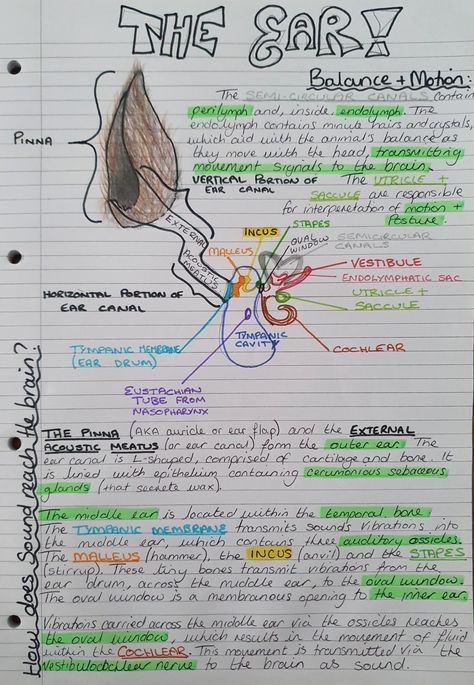 THE EAR!
Balance + Motion:
The SEMI-CIRCULAR CANALS contain
perilymph and, inside, endolymph. The
endolymph contains minute hairs and crystals,
which aid with the animal's balance as
they move with the head, transmitting
movement signals to the brain.
The UTRICLE +
SACCULE are responsible
for interpretation of motion +
Posture.
PINNA
VERTICAL PORTION OF
EAR CANAL
EXTERNAL
ACOUSTIC
MEATUS
HORIZONTAL PORTION OF
EAR CANAL
MALLEUS
INCUS
STAPES
OVAL
WINDOW
SEMICIRCULAR
CANALS
VESTIBULE
ENDOLYMPHATIC SAC
UTRICLE +
SACCULE
COCHLEAR
TYMPANIC
CAVITY
TYMPANIC MEMBRANE
(EAR DRUM)
EUSTACHIAN
TUBE FROM
NASOPHARYNX
How does Sound reach the brain?
THE PINNA (AKA auricle or ear flap) and the EXTERNAL
ACOUSTIC MEATUS (or ear canal) form the outer ear. The
ear canal is L-shaped, comprised of cartilage and bone. It
is lined with epithelium containing cerumonious sebaceous
glands (that secrete wax).
The middle ear is located within the temporal bone.
The TYMPANIC MEMBRANE transmits sounds vibrations into
the middle ear, which contains three auditory ossicles.
The MALLEUS (hammer), the INCUS (anvil) and the STAPES
(stirrup). These tiny bones transmit vibrations from the
ear drum, across the middle ear, to the oval window.
The oval window is a membranous opening to the inner ear.
Vibrations carried across the middle ear via the ossicles reaches
the oval window, which results in the movement of fluid
within the COCHLEAR. This movement is transmitted via the
Vestibulocochlear nerve to the brain as sound.